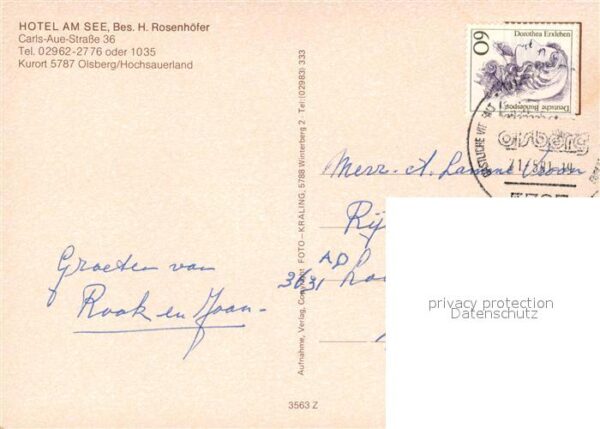 HOTEL AM SEE, Bes. H. Rosenhöfer
Carls-Aue-Straße 36
Tel. 02962-2776 oder 1035
Kurort 5787 Olsberg/Hochsauerland
Groeten van
Rook en Joan-
Aufnahme, Verlag, Copyright FOTO – KRALING, 5788 Winterberg 2 Tel: (02983) 333
3563 Z
Dorothea Erxleben
60
Deutsche Bundespost
olsberg
5787
Mevr. A.
3631 AD
privacy protection
Datenschutz